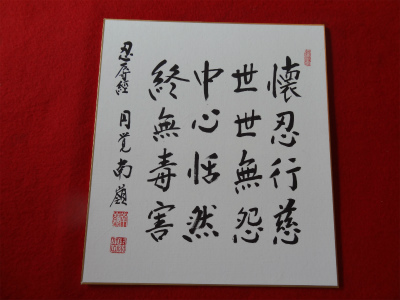 懐忍行慈
世世無怨
中心恬然
終無毒害
忍辱経 円覚南嶺